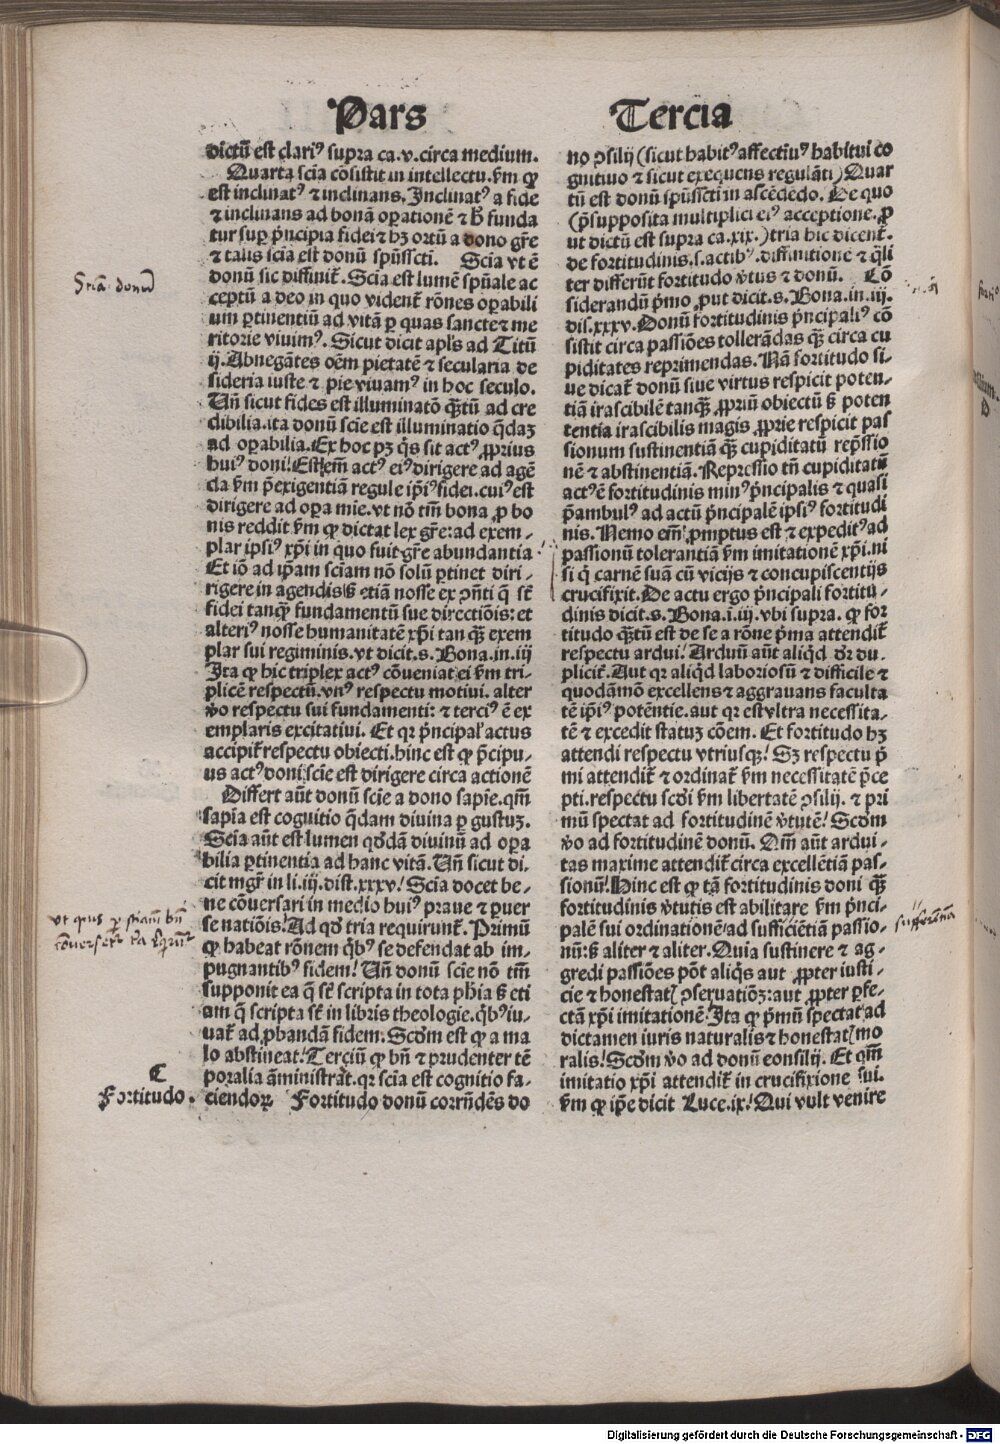 Pars
Tercia
dictū est clariꝰ supra ca.v.circa medium.
Quarta sciā cōsistit in intellectu.ẜm ꝙ
est inclinatꝰ ⁊ inclinans. Inclinatꝰ a fide
⁊ inclinans ad bonā oꝑationē ⁊ h̄ funda
tur suꝑ pͥncipia fidei ⁊ hꝫ ortū a dono gr̄e
⁊ talis scīa est donū spūssctī. Scīa vt ē
donū sic diffiniꞇ̄. Scīa est lumē spūale ac
ceptū a deo in quo videnꞇ̄ rōnes oꝑabili
um ꝑtinentiū ad vitā ꝑ quas sancte ⁊ me
ritorie viuimꝰ. Sicut dicit apl̄s ad Titū
ij. Abnegātes oēm pietatē ⁊ secularia de
sideria iuste ⁊ pie viuamꝰ in hoc seculo.
Vn̄ sicut fides est illuminatō qͣꝫtū ad cre
dibilia.ita donū scīe est illuminatio qͣdaꝫ
ad oꝑabilia. Ex hoc pꝫ qͥs sit actꝰ ꝓprius
huiꝰ doni. Est em̄ actꝰ eiꝰ dirigere ad agē
da ẜm p̄exigentiā regule ip̄iꝰ fidei.cuiꝰ est
dirigere ad oꝑa mīe.vt nō tm̄ bona ꝓ bo
nis reddit ẜm ꝙ dictat lex gr̄e: ad exem⸗
plar ipsiꝰ xp̄i in quo fuit gr̄e abundantia
Et iō ad ip̄am sciam nō solū ꝑtinet diri⸗
rigere in agendis ẜ etiā nosse ex ꝯn̄ti q̄ sꞇ̄
fidei tanqͣꝫ fundamentū sue directiōis: et
alteriꝰ nosse humanitatē xp̄i tan qͣꝫ exem
plar sui regiminis.vt dicit.s. Bona.in.iij
Ita ꝙ hic triplex actꝰ cōueniat ei ẜm tri⸗
plicē respectū.vnꝰ respectu motiui. alter
v̊o respectu sui fundamenti: ⁊ terciꝰ ē ex
emplaris excitatiui. Et qꝛ pͥncipal' actus
accipiꞇ̄ respectu obiecti.hinc est ꝙ pͥncipu⸗
us actꝰ doni scīe est dirigere circa actionē
Differt aūt donū scīe a dono sapīe.qm̄
sapīa est cognitio qͣdam diuina ꝑ gustuꝫ.
Scīa aūt est lumen qͦddā diuinū ad oꝑa
bilia ꝑtinentia ad hanc vitā. Vn̄ sicut di⸗
cit mgr̄ in li.iij.dist.xxxv. Scīa docet be⸗
ne cōuersari in medio huiꝰ praue ⁊ ꝑuer
se natiōis. Ad qͦd tria requirunꞇ̄. Primū
ꝙ habeat rōnem qͥbꝰ se defendat ab im⸗
pugnantibꝰ fidem. Vn̄ donū scīe nō tm̄
supponit ea q̄ sꞇ̄ scripta in tota ph̄ia ẜ eti
am q̄ scripta sꞇ̄ in libris theologie.qͥbꝰ iu⸗
uaꞇ̄ ad ꝓbandā fidem. Scd̄m est ꝙ a ma
lo abstineat. Terciū ꝙ bn̄ ⁊ prudenter tē
poralia āministrat.qꝛ scīa est cognitio fa⸗
ciendoꝝ Fortitudo donū corrn̄dēs do
C
Fortitudo.
no ꝯsilij (sicut habitꝰ affectiuꝰ habitui co
gnitiuo ⁊ sicut exequens regulāti) Quar
tū est donū spūsscti in ascēdēdo. De quo
(p̄supposita multiplici eiꝰ acceptione.ꝓ
ut dictū est supra ca.xix.) tria hic dicenꞇ̄.
de fortitudinis.s.actibꝰ.diffinitione ⁊ qͣli
ter differūt fortitudo v̓tus ⁊ donū. Cō
siderandū pͥmo ꝓut dicit.s. Bona.in.iij.
dis.xxxv. Donū fortitudinis pͥncipaliꝰ cō
sistit circa passiōes tollerādas qͣꝫ circa cu
piditates reprimendas. Nā fortitudo si⸗
ue dicaꞇ̄ donū siue virtus respicit poten⸗
tiā irascibilē tanqͣꝫ ꝓpriū obiectū ẜ poten
tentia irascibilis magis ꝓprie respicit pas
sionum sustinentiā qͣꝫ cupiditatū rep̄ssio
nē ⁊ abstinentiā. Repressio tn̄ cupiditatū
actꝰ ē fortitudinis minꝰ pͥncipalis ⁊ quasi
p̄ambulꝰ ad actū pͥncipalē ipsiꝰ fortitudi
nis. Nemo em̄ ꝓmptus est ⁊ expeditꝰ ad
passionū tolerantiā ẜm imitationē xp̄i.ni
si qͥ carnē suā cū vicijs ⁊ concupiscentijs
crucifixit. De actu ergo pͥncipali fortitu⸗
dinis dicit.s. Bona.ī.iij.vbi supra. ꝙ for
titudo qͣꝫtū est de se a rōne pͥma attendiꞇ̄
respectu ardui. Arduū aūt aliqͥd dꝛ du⸗
pliciꞇ̄. Aut qꝛ aliqͥd laboriosū ⁊ difficile ⁊
quodāmō excellens ⁊ aggrauans faculta
tē ip̄iꝰ potentie.aut qꝛ est vltra necessita⸗
tē ⁊ excedit statuꝫ cōem. Et fortitudo hꝫ
attendi respectu vtriusqꝫ. Sꝫ respectu pͥ
mi attendiꞇ̄ ⁊ ordinaꞇ̄ ẜm necessitatē p̄ce
pti.respectu scd̄i ẜm libertatē ꝯsilij. ⁊ pri
mū spectat ad fortitudinē v̓tutē. Scd̄m
v̊o ad fortitudinē donū. Qm̄ aūt ardui⸗
tas maxime attendiꞇ̄ circa excellētiā pas⸗
sionū. Hinc est ꝙ tā fortitudinis doni qͣꝫ
fortitudinis v̓tutis est abilitare ẜm pͥnci⸗
palē sui ordinationē ad sufficiētiā passio⸗
nū: ẜ aliter ⁊ aliter. Quia sustinere ⁊ ag⸗
gredi passiōes pōt aliqͥs aut ꝓpter iusti⸗
cie ⁊ honestatꝭ ꝯseruatiōꝫ: aut ꝓpter ꝑfe⸗
ctā xp̄i imitationē. Ita ꝙ pͥmū spectat ad
dictamen iuris naturalis ⁊ honestatꝭ mo
ralis. Scd̄m v̊o ad donū consilij. Et qm̄
imitatio xp̄i attendiꞇ̄ in crucifixione sui.
ẜm ꝙ ip̄e dicit Luce.ix. Qui vult venire
Digitalisierung gefördert durch die Deutsche Forschungsgemeinschaft - DFG